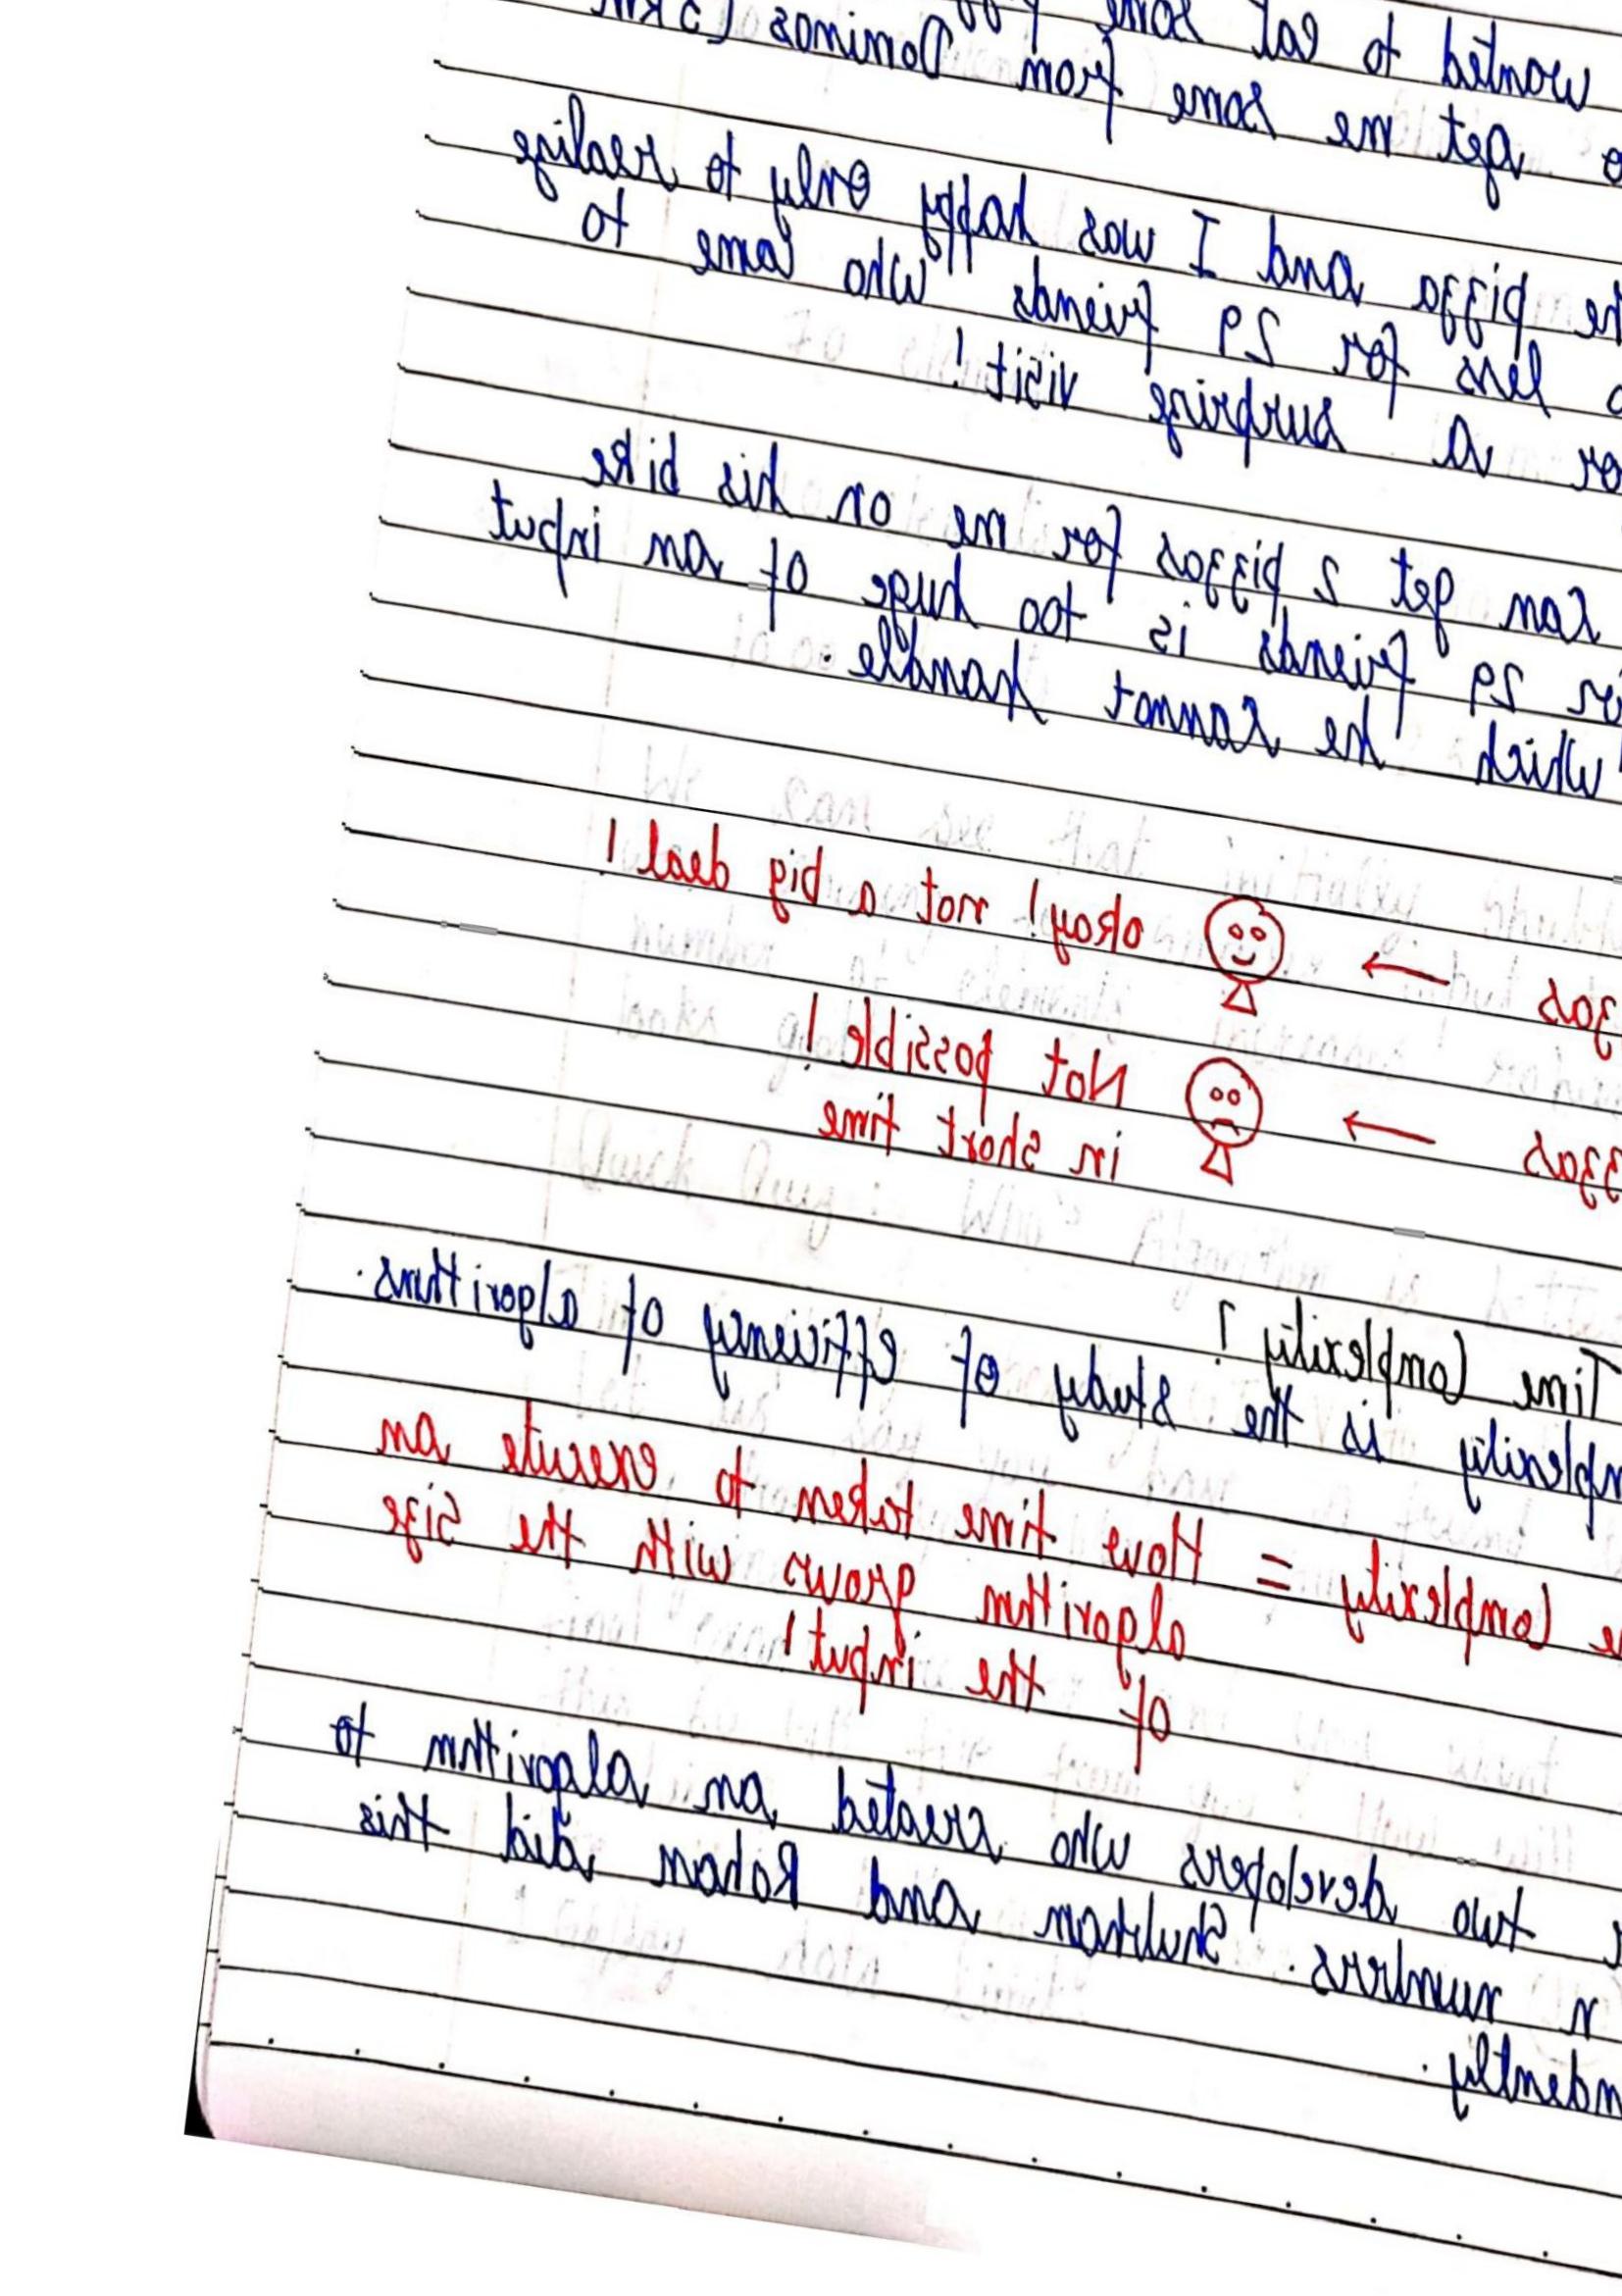 wanted to eat some
get me some from Dominos (5 km
pizza and I was happy only to realize
less for 29 friends who came to
a surprize visit!
can get 2 pizzas for me on his bike
29 friends is too huge of an input
which he cannot handle.
→ okay! not a big deal!
→ Not possible!
in short time
Time Complexity?
is the study of efficiency of algorithms.
Complexity = How time taken to execute an
algorithm grows with the size
of the input!
two developers who created an algorithm to
n numbers. Shubham and Rohan did this